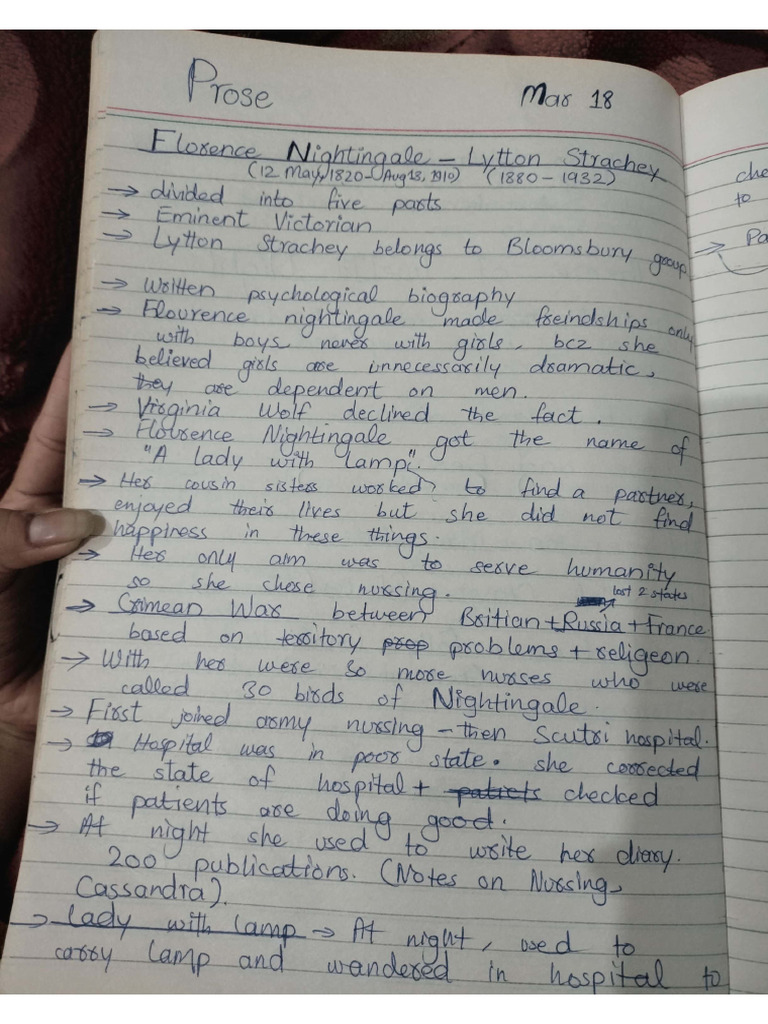 Prose
Mar 18
Florence Nightingale – Lytton Strachey
(12 May, 1820 – Aug 13, 1910) (1880 – 1932)
→ divided into five parts
→ Eminent Victorian
→ Lytton Strachey belongs to Bloomsbury group
→ Written psychological biography
→ Flourence nightingale made freindships only
with boys never with girls, bcz she
believed girls are unnecessarily dramatic,
they are dependent on men.
→ Virginia Wolf declined the fact.
→ Flourence Nightingale got the name of
"A lady with lamp".
→ Her cousin sisters worked to find a partner,
enjoyed their lives but she did not find
happiness in these things.
→ Her only aim was to serve humanity
so she chose nursing.
lost 2 states
→ Crimean War between Britian + Russia + France
based on territory prop problems + religeon.
→ With her were so more nurses who were
called 30 birds of Nightingale.
→ First joined army nursing – then Scutri hospital.
→ Hospital was in poor state. she corrected
the state of hospital + patiets checked
if patients are doing good.
→ At night she used to write her diary.
200 publications. (Notes on Nursing,
Cassandra).
→ Lady with lamp → At night, used to
carry lamp and wandered in hospital to
che
to
→ Pa